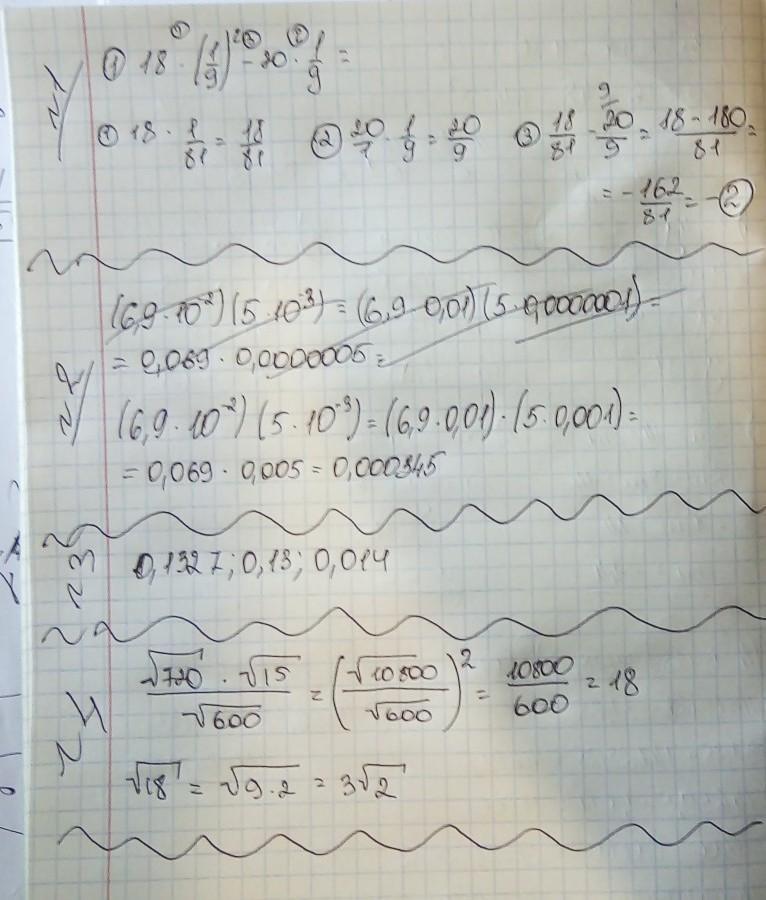 №1
① 18 · (1/9)² - 20 · 1/9 =
① 18 · 1/81 = 18/81 ② 20/1 · 1/9 = 20/9 ③ 18/81 - 20/9 = (18 - 180)/81 =
= -162/81 = -2
№2
(6,9·10⁻²)(5·10⁻³) = (6,9·0,01)(5·0,0000001) =
= 0,069 · 0,0000005 =
(6,9·10⁻²)(5·10⁻³) = (6,9·0,01)·(5·0,001) =
= 0,069 · 0,005 = 0,000345
№3 0,1327; 0,13; 0,014
№4
√720 · √15 / √600 = (√10800 / √600)² = 10800/600 = 18
√18 = √9·2 = 3√2